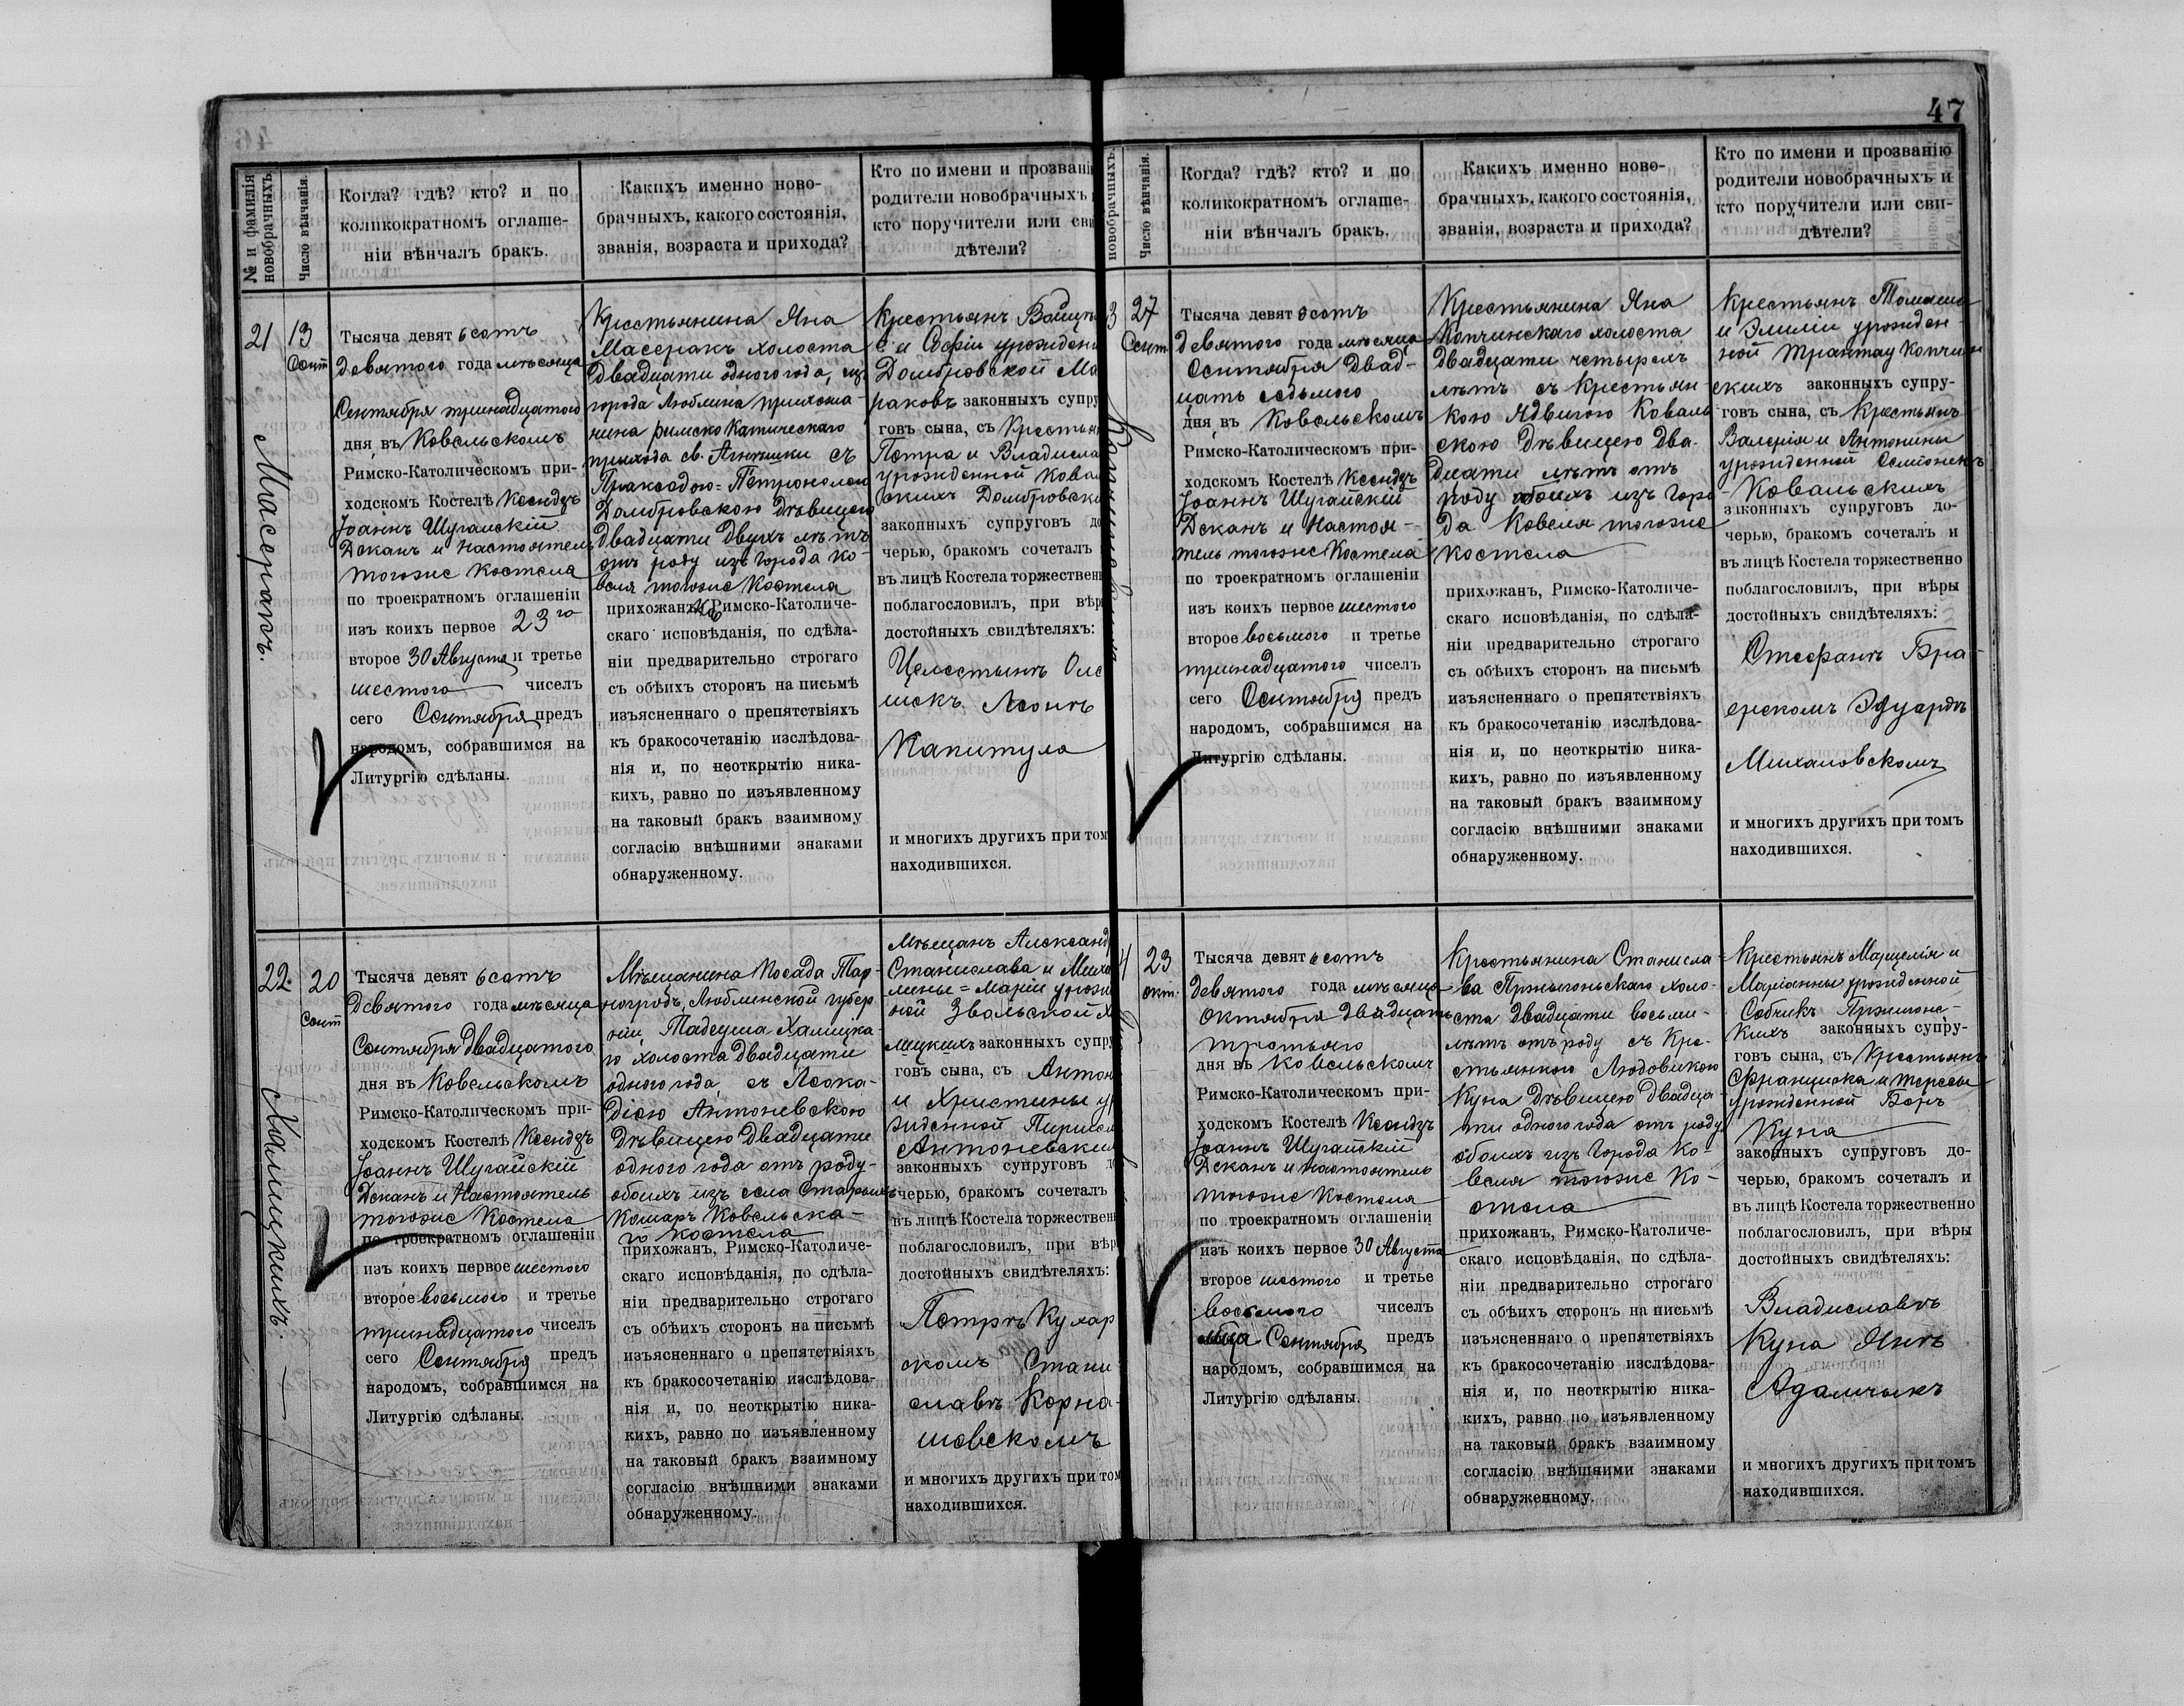 47
№ и фамилія
новобрачныхъ.
Число вѣнчанія.
Когда? гдѣ? кто? и по
коликократномъ оглаше-
ніи вѣнчалъ бракъ.
Какихъ именно ново-
брачныхъ, какого состоянія,
званія, возраста и прихода?
Кто по имени и прозванію
родители новобрачныхъ
кто поручители или сви
дѣтели?
21
Масеракъ.
13
Сент
Тысяча девятьсотъ
девятого года мѣсяца
Сентября тринадцатого
дня, въ Ковельскомъ
Римско-Католическомъ при-
ходскомъ Костелѣ Ксендзъ
Іоаннъ Шугайскій
Деканъ и Настоятель
тогоже Костела
по троекратномъ оглашеніи
изъ коихъ первое 23го
второе 30 Августа и третье
шестого чиселъ
сего Сентября предъ
народомъ, собравшимся на
Литургію сдѣланы.
Крестьянина Яна
Масеракъ холоста
двадцати одного года, изъ
города Люблина прихожа-
нина римско Катическаго
прихода св. Агнешки съ
Праксадою=Петронелею
Домбровскою дѣвицею
двадцати двухъ лѣтъ
отъ роду изъ города Ко-
веля тогоже Костела
прихожанъ, Римско-Католиче-
скаго исповѣданія, по сдѣла-
ніи предварительно строгаго
съ обѣихъ сторонъ на письмѣ
изъясненнаго о препятствіяхъ
къ бракосочетанію изслѣдова-
нія и, по неоткрытію ника-
кихъ, равно по изъявленному
на таковый бракъ взаимному
согласію внѣшними знаками
обнаруженному.
Крестьянъ
и Софіи урожден
Домбровской Ма
раковъ законныхъ супру
говъ сына, съ Крестьян
Петра и Владисла
урожденной Ковал
скихъ Домбровски
законныхъ супруговъ до
черью, бракомъ сочеталъ
въ лицѣ Костела торжествен
поблагословилъ, при вѣр
достойныхъ свидѣтеляхъ:
Целестынъ Оле
шекъ Леонъ
Капитула
и многихъ другихъ при том
находившихся.
22.
Халицкихъ.
20
Сент
Тысяча девятьсотъ
девятого года мѣсяца
Сентября двадцатого
дня въ Ковельскомъ
Римско-Католическомъ при-
ходскомъ Костелѣ Ксендзъ
Іоаннъ Шугайскій
Деканъ и Настоятель
тогоже Костела
по троекратномъ оглашеніи
изъ коихъ первое шестого
второе восьмого и третье
тринадцатого чиселъ
сего Сентября предъ
народомъ, собравшимся на
Литургію сдѣланы.
Мѣщанина Посада Тар-
ногродъ, Люблинской губер
ніи, Тадеуша Халицка-
го холоста двадцати
одного года, съ Леока-
дією Антоневскою
дѣвицею двадцати
одного года отъ роду-
обоихъ изъ села Старыхъ
Кошаръ Ковельска-
го Костела
прихожанъ, Римско-Католиче-
скаго исповѣданія, по сдѣла-
ніи предварительно строгаго
съ обѣихъ сторонъ на письмѣ
изъясненнаго о препятствіяхъ
къ бракосочетанію изслѣдова-
нія и, по неоткрытію ника-
кихъ, равно по изъявленному
на таковый бракъ взаимному
согласію внѣшними знаками
обнаруженному.
Мѣщанъ Александ
Станислава и Миха
лины=Маріи урож
ной Звальской Х
лицкихъ законныхъ супру
говъ сына, съ Антон
и Христины ур
жденной
Антоневски
законныхъ супруговъ до
черью, бракомъ сочеталъ
въ лицѣ Костела торжествен
поблагословилъ, при вѣр
достойныхъ свидѣтеляхъ:
Петръ Кухар
скомъ Стани
славъ Корна-
шевскомъ
и многихъ другихъ при том
находившихся.
новобрачныхъ.
Число вѣнчанія.
Когда? гдѣ? кто? и по
коликократномъ оглаше-
ніи вѣнчалъ бракъ.
Какихъ именно ново-
брачныхъ, какого состоянія,
званія, возраста и прихода?
Кто по имени и прозванію
родители новобрачныхъ и
кто поручители или сви-
дѣтели?
3
27
Сент.
Тысяча девятьсотъ
девятого года мѣсяца
Сентября двад-
цать седьмого
дня въ Ковельскомъ
Римско-Католическомъ при-
ходскомъ Костелѣ Ксендзъ
Іоаннъ Шугайскій
Деканъ и Настоя-
тель тогоже Костела
по троекратномъ оглашеніи
изъ коихъ первое шестого
второе восьмого и третье
тринадцатого чиселъ
сего Сентября предъ
народомъ, собравшимся на
Литургію сдѣланы.
Крестьянина Яна
Копчинскаго холоста
двадцати четырехъ
лѣтъ съ Крестьян
кою Ядвигою Коваль
скою дѣвицею два-
дцати лѣтъ отъ
роду обоихъ изъ горо
да Ковеля тогоже
костела
прихожанъ, Римско-Католиче-
скаго исповѣданія, по сдѣла-
ніи предварительно строгаго
съ обѣихъ сторонъ на письмѣ
изъясненнаго о препятствіяхъ
къ бракосочетанію изслѣдова-
нія и, по неоткрытію ника-
кихъ, равно по изъявленному
на таковый бракъ взаимному
согласію внѣшними знаками
обнаруженному.
Крестьянъ Томаша
и Эмиліи урожден-
ной Трантау Копчин
скихъ законныхъ супру-
говъ сына, съ Крестьянъ
Валерія и Антонины
урожденной
Ковальскихъ
законныхъ супруговъ до-
черью, бракомъ сочеталъ и
въ лицѣ Костела торжественно
поблагословилъ, при вѣры
достойныхъ свидѣтеляхъ:
Стефанъ Бра-
ерскомъ Эдуардъ
Михаловскомъ
и многихъ другихъ при томъ
находившихся.
4
23
окт.
Тысяча девятьсотъ
девятого года мѣсяца
Октября двадцать
третьяго
дня въ Ковельскомъ
Римско-Католическомъ при-
ходскомъ Костелѣ Ксендзъ
Іоаннъ Шугайскій
Деканъ и Настоятель
тогоже Костела
по троекратномъ оглашеніи
изъ коихъ первое 30 Августа
второе шестого и третье
восьмого чиселъ
мца Сентября предъ
народомъ, собравшимся на
Литургію сдѣланы.
Крестьянина Станисла-
ва холо-
ста двадцати восьми-
лѣтъ отъ роду съ Кре-
стьянкою Людовикою
Куна дѣвицею двадца-
ти одного года отъ роду
обоихъ изъ города Ко-
веля тогоже Ко-
стела
прихожанъ, Римско-Католиче-
скаго исповѣданія, по сдѣла-
ніи предварительно строгаго
съ обѣихъ сторонъ на письмѣ
изъясненнаго о препятствіяхъ
къ бракосочетанію изслѣдова-
нія и, по неоткрытію ника-
кихъ, равно по изъявленному
на таковый бракъ взаимному
согласію внѣшними знаками
обнаруженному.
Крестьянъ Марцелія и
Маріанны урожденной
Собчикъ
кихъ законныхъ супру-
говъ сына, съ Крестьянъ
Францишка и Тересы
урожденной Бонъ
Куна
законныхъ супруговъ до-
черью, бракомъ сочеталъ и
въ лицѣ Костела торжественно
поблагословилъ, при вѣры
достойныхъ свидѣтеляхъ:
Владиславъ
Куна Янъ
Адамчыкъ
и многихъ другихъ при томъ
находившихся.